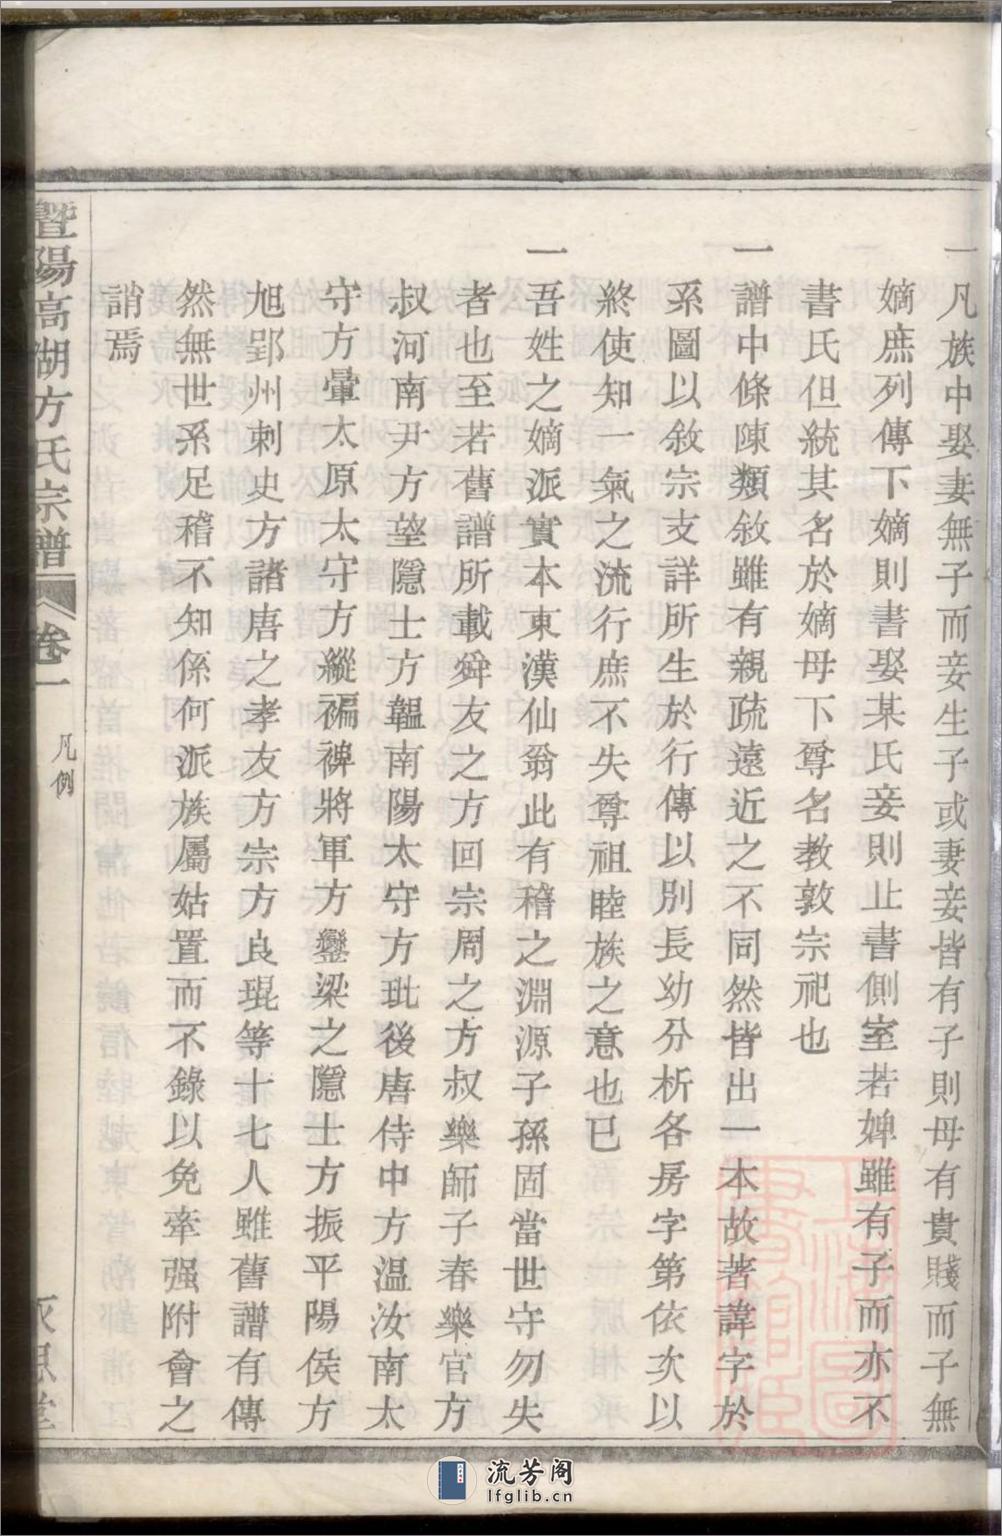 一凡族中娶妻無子而妾生子或妻妾皆有子則母有貴賤而子無
嫡庶列傳下嫡則書娶某氏妾則止書側室若婢雖有子而亦不
書氏但統其名於嫡母下尊名教敦宗祀也
一譜中條陳類敘雖有親疏遠近之不同然皆出一本故著諱字於
系圖以敘宗支詳所生於行傳以別長幼分析各房字第依次以
終使知一氣之流行庶不失尊祖睦族之意也已
一吾姓之嫡派實本東漢仙翁此有稽之淵源子孫固當世守勿失
者也至若舊譜所載舜友之方回宗周之方叔樂師子春樂官方
叔河南尹方望隱士方韞南陽太守方玭後唐侍中方溫汝南太
守方暈太原太守方縱褊裨將軍方鑾梁之隱士方振平陽侯方
旭郢州刺史方諸唐之孝友方宗方良琨等十七人雖舊譜有傳
然無世系足稽不知係何派族屬姑置而不錄以免牽强附會之
誚焉
暨陽高湖方氏宗譜
卷一
凡例
思堂
流芳阁
lfglib.cn